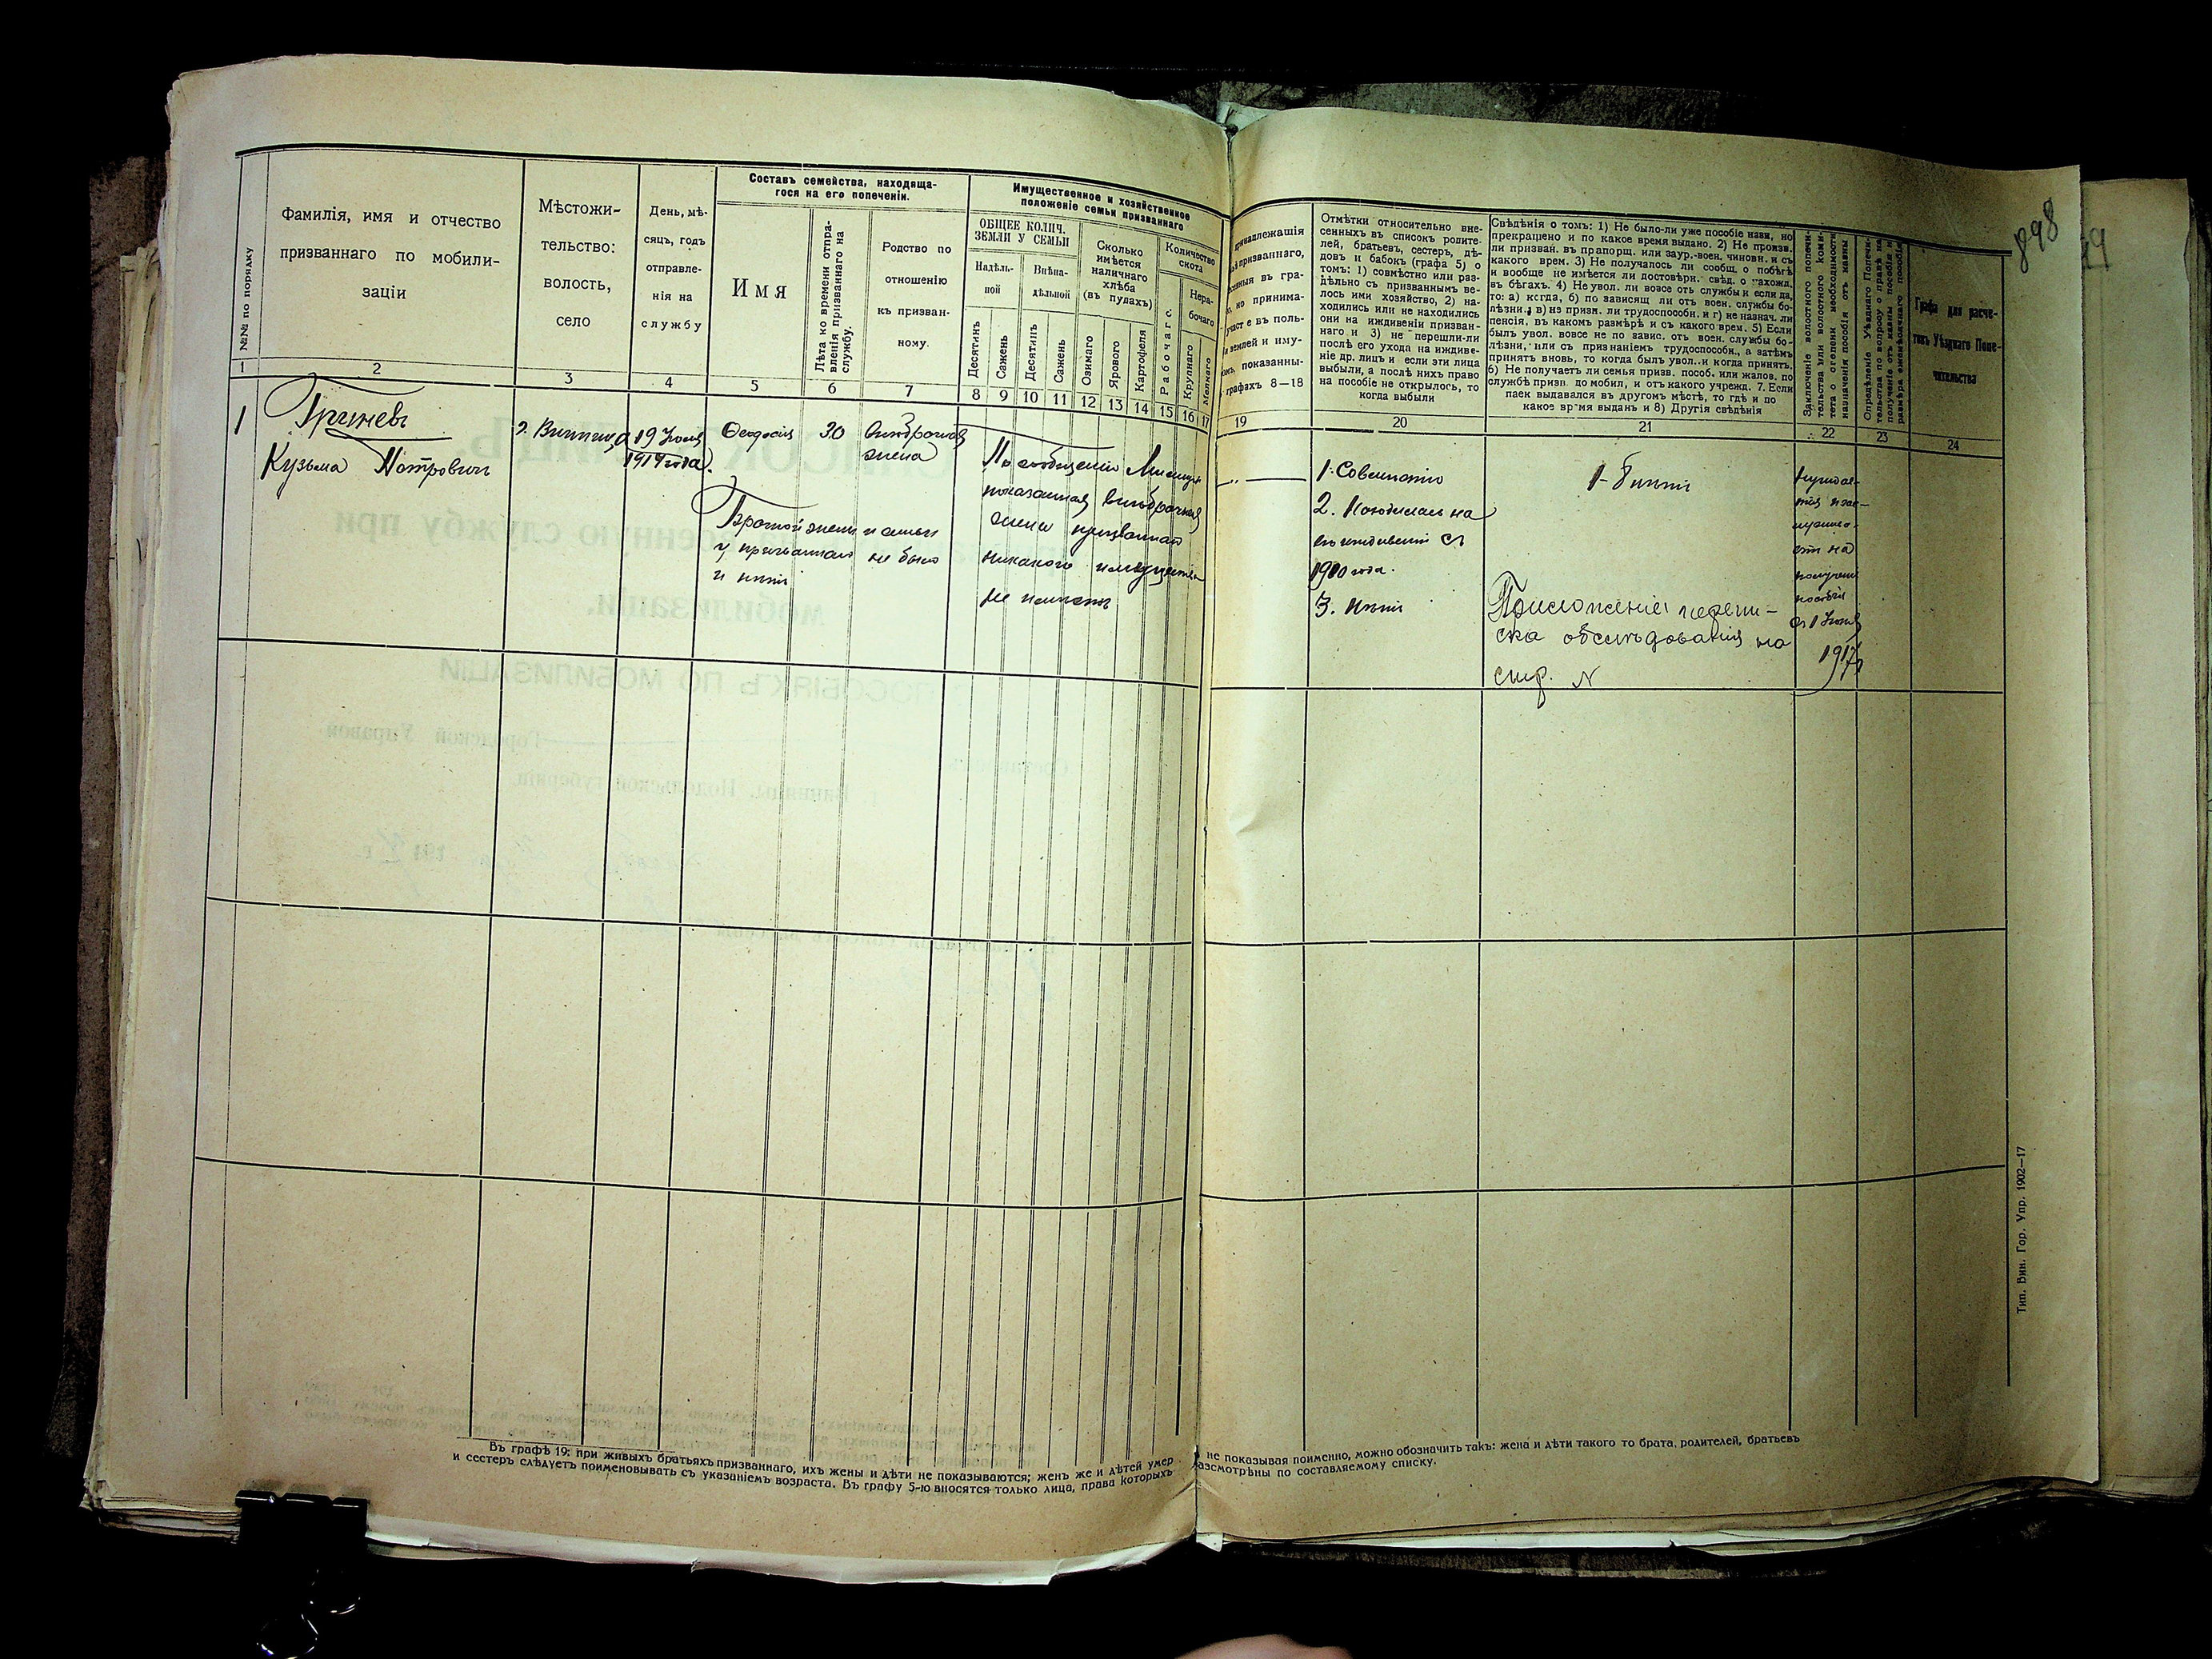 898
29
№№ по порядку
Фамилія, имя и отчество
призваннаго по мобили-
заціи
Мѣстожи-
тельство:
волость,
село
День, мѣ-
сяцъ, годъ
отправле-
нія на
службу
Составъ семейства, находяща-
гося на его попеченіи.
Имя
Лѣта ко времени отпра-
вленія призваннаго на
службу.
Родство по
отношенію
къ призван-
ному.
Имущественное и хозяйственное
положеніе семьи призваннаго
ОБЩЕЕ КОЛИЧ.
ЗЕМЛИ У СЕМЬИ
Надѣль-
ной
Внѣна-
дѣльной
Десятинъ
Сажень
Десятинъ
Сажень
Сколько
имѣется
наличнаго
хлѣба
(въ пудахъ)
Озимаго
Ярового
Картофеля
Количество
скота
Рабочаго
Нера-
бочаго
Крупнаго
Мелкаго
призваннаго,
въ гра-
но принима-
въ поль-
землей и иму-
показанны-
графахъ 8—18
Отмѣтки относительно вне-
сенныхъ въ списокъ родите-
лей, братьевъ, сестеръ, дѣ-
довъ и бабокъ (графа 5) о
томъ: 1) совмѣстно или раз-
дѣльно съ призваннымъ ве-
лось ими хозяйство, 2) на-
ходились или не находились
они на иждивеніи призван-
наго и 3) не перешли-ли
послѣ его ухода на иждиве-
ніе др. лицъ и если эти лица
выбыли, а послѣ нихъ право
на пособіе не открылось, то
когда выбыли
Свѣдѣнія о томъ: 1) Не было-ли уже пособіе назн, но
прекращено и по какое время выдано. 2) Не произв.
ли призван. въ прапорщ. или заур.-воен. чиновн. и съ
какого врем. 3) Не получалось ли сообщ. о побѣгѣ
и вообще не имѣется ли достовѣрн. свѣд. о нахожд.
въ бѣгахъ. 4) Не увол. ли вовсе отъ службы и если да,
то: а) когда, б) по зависящ ли отъ воен. службы бо-
лѣзни, в) нэ призн. ли трудоспособн. и г) не назнач. ли
пенсія, въ какомъ размѣрѣ и съ какого врем. 5) Если
былъ увол. вовсе не по завис. отъ воен. службы бо-
лѣзни, или съ признаніемъ трудоспособн., а затѣмъ
принятъ вновь, то когда былъ увол. и когда принятъ.
6) Не получаетъ ли семья призв. пособ. или жалов. по
службѣ призв. до мобил, и отъ какого учрежд. 7. Если
паек выдавался въ другомъ мѣстѣ, то гдѣ и по
какое время выданъ и 8) Другія свѣдѣнія
Заключеніе волостного попечи-
тельства или волостного коми-
тета о степени необходимости
назначенія пособія отъ казны
Опредѣленіе Уѣзднаго Попечи-
тельства по вопросу о правѣ на
полученіе отъ казны пособія и
размѣра ежемѣсячнаго пособія
Графа для расче-
товъ Уѣзднаго Попе-
чительства
1 2 3 4 5 6 7 8 9 10 11 12 13 14 15 16 17 19 20 21 22 23 24
1
Гриневъ
Кузьма Петровичъ
г. Винница
19 Іюля
1914 года.
Ѳеодосія
30
Внѣбрачная
жена
Брачной жены и семьи
у призваннаго не было
и нѣтъ
По сообщенію Милиціи
показанная внѣбрачная
жена призваннаго
никакого имущества
не имѣетъ
1. Совмѣстно
2. Находилась на
его иждивеніи съ
1910 года.
3. Нѣтъ
1- Нѣтъ
Приложеніе: перепи-
ска обслѣдованія на
стр. N
на
пособія
съ 1 Іюня
1917
Тип. Вин. Гор. Упр. 1902—17
Въ графѣ 19: при живыхъ братьяхъ призваннаго, ихъ жены и дѣти не показываются; женъ же и дѣтей умер
не показывая поименно, можно обозначить такъ: жена и дѣти такого то брата, родителей, братьевъ
и сестеръ слѣдуетъ поименовывать съ указаніемъ возраста. Въ графу 5-ю вносятся только лица, права которыхъ
разсмотрѣны по составляемому списку.